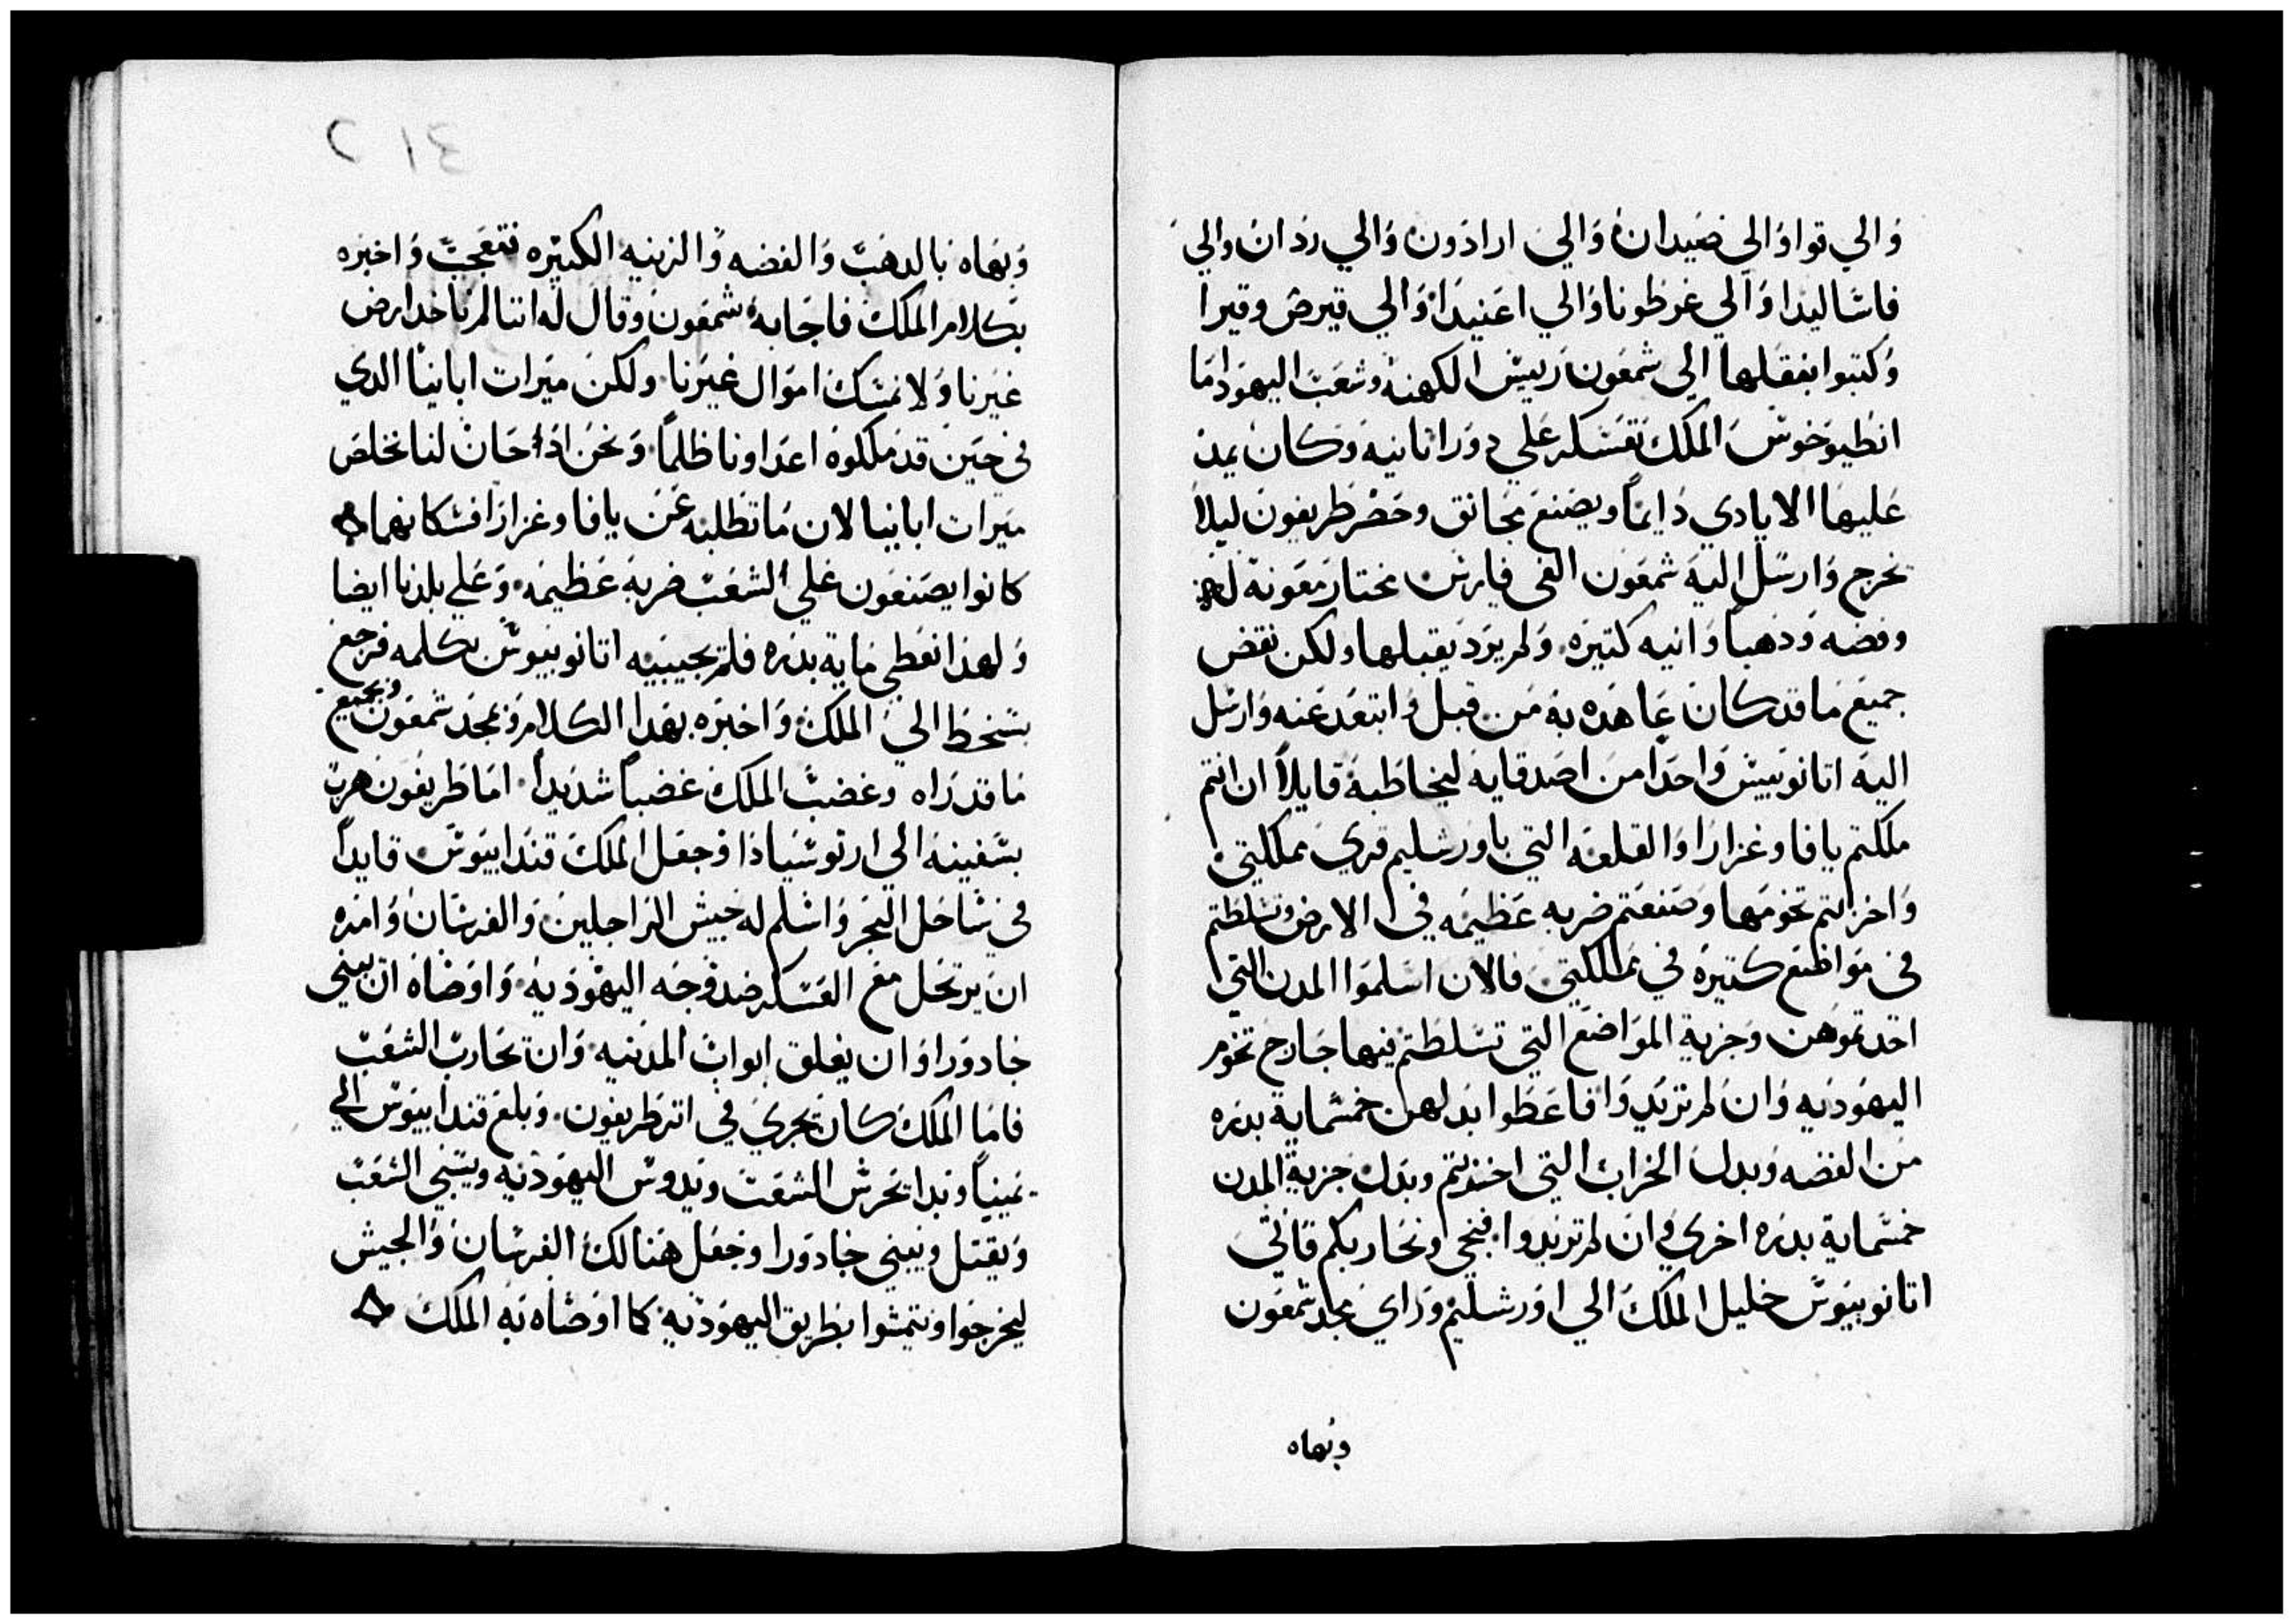 والي قوا والي صيدان والي ارادون والي ردان والي
فاشاليدا والي غوظونا والي اعنيدا والي قبرص وقيرا
وكتبوا بفعلها الي شمعون رييس الكهنه وشعب اليهود اما
انطيوخوس الملك تعسكر علي دورا ثانيه وكان يمد
عليها الايادي دايما ويصنع مجانق وحصر طريفون ليلا
يخرج وارسل اليه شمعون الفي فارس مختار معونة له
وفضه وذهبا وانيه كتيره ولم يرد يقبلها ولكن نقض
جميع ما قد كان عاهده به من قبل وابتعد عنه وارسل
اليه اتانوبيس واحدا من اصدقايه ليخاطبه قايلا ان انتم
ملكتم يافا وغزارا والقلعه التي باورشليم قري مملكتي
واخزلتم تخومها وصنعتم ضربه عظيمه في الارض وتسلطتم
في مواظع كتيره في مملكتي فالان اسلموا المدن التي
اخدتموهن وجزية المواضع التي تسلطتم فيها خارج تخوم
اليهوديه وان لم تريدوا فاعطوا بدلهن خمسماية بدره
من الفضه وبدل الخراب التي اخذيتم وبدل جزية المدن
خمسماية بدره اخري وان لم تريدوا فنجي ونحاربكم فاتي
اتانوبيوس خليل الملك الي اورشليم وراي مجد شمعون
وبهاه
وبهاه بالدهب والفضه والزينه الكتيره فتعجب واخبره
بكلام الملك فاجابه شمعون وقال له اننا لم ناخد ارض
غيرنا ولا نمسك اموال غيرنا ولكن ميرات اباينا الدي
في حين قد ملكوه اعداونا ظلما ونحن اذا حان لنا نخلص
ميرات اباينا لان ما تطلبه عن يافا وغزارا فسكانهما
كانوا يصنعون علي الشعب ضربه عظيمه وعلي بلدنا ايضا
ولهدا نعطي ماية بدره فلم يجيبيه اتانوبيوس بكلمه فرجع
بسخط الي الملك واخبره بهدا الكلام وبمجد شمعون وبجميع
ما قد راه وغضب الملك غضبا شديدا اما طريفون هرب
بسفينه الي ارتوسياذا وجعل الملك قندابيوس قايدا
في ساحل البحر واسلم له جيش الراجلين والفرسان وامره
ان يرتحل مع العسكر ضد وجه اليهوديه واوصاه ان يبني
خادورا وان يغلق ابواب المدينه وان تحارب الشعب
فاما الملك كان يجري في اتر طريفون وبلغ قندابيوس الي
يمينيا وبدا يحرش الشعب ويدوس اليهوديه ويسبي الشعب
ويقتل ويبني خادورا وجعل هنالك الفرسان والجيش
ليخرجوا ويتمشوا بطريق اليهوديه كما اوصاه به الملك